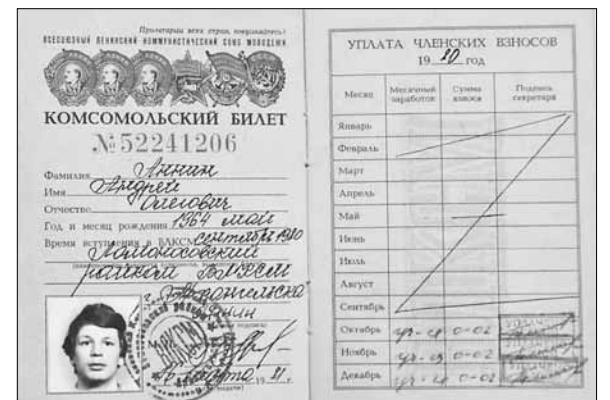 Пролетарии всех стран, соединяйтесь!
ВСЕСОЮЗНЫЙ ЛЕНИНСКИЙ КОММУНИСТИЧЕСКИЙ СОЮЗ МОЛОДЕЖИ
КОМСОМОЛЬСКИЙ БИЛЕТ
№ 52241206
Фамилия Аннин
Имя Андрей
Отчество Олегович
Год и месяц рождения 1964 май
Время вступления в ВЛКСМ сентябрь 1980
Ломоносовский
райком ВЛКСМ
Архангельска
Аннин
марта 1981 г.
УПЛАТА ЧЛЕНСКИХ ВЗНОСОВ
1980 год
Месяц Месячный заработок Сумма взноса Подпись секретаря
Январь
Февраль
Март
Апрель
Май
Июнь
Июль
Август
Сентябрь
Октябрь уч-ся 0-02
Ноябрь уч-ся 0-02
Декабрь уч-ся 0-02